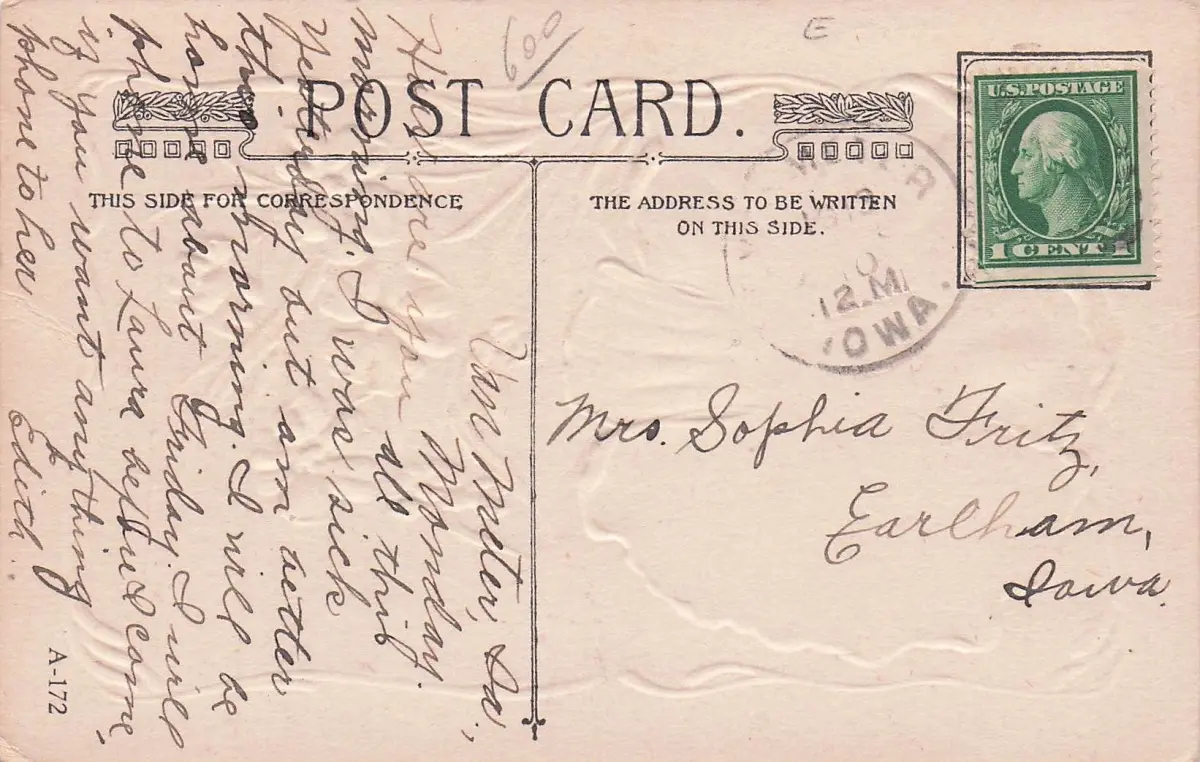 600
E
POST CARD.
THIS SIDE FOR CORRESPONDENCE
THE ADDRESS TO BE WRITTEN
ON THIS SIDE.
U.S. POSTAGE
1 CENT 1
12 M
IOWA.
Van Meter, Ia.,
Monday.
How are you all this
morning. I was sick
Yesterday but am better
this morning. I will be
home about Friday. I will
phone to Laura before I come,
if you want any thing
phone to her
Edith.
Mrs. Sophia Fritz,
Earlham,
Iowa.
A-172